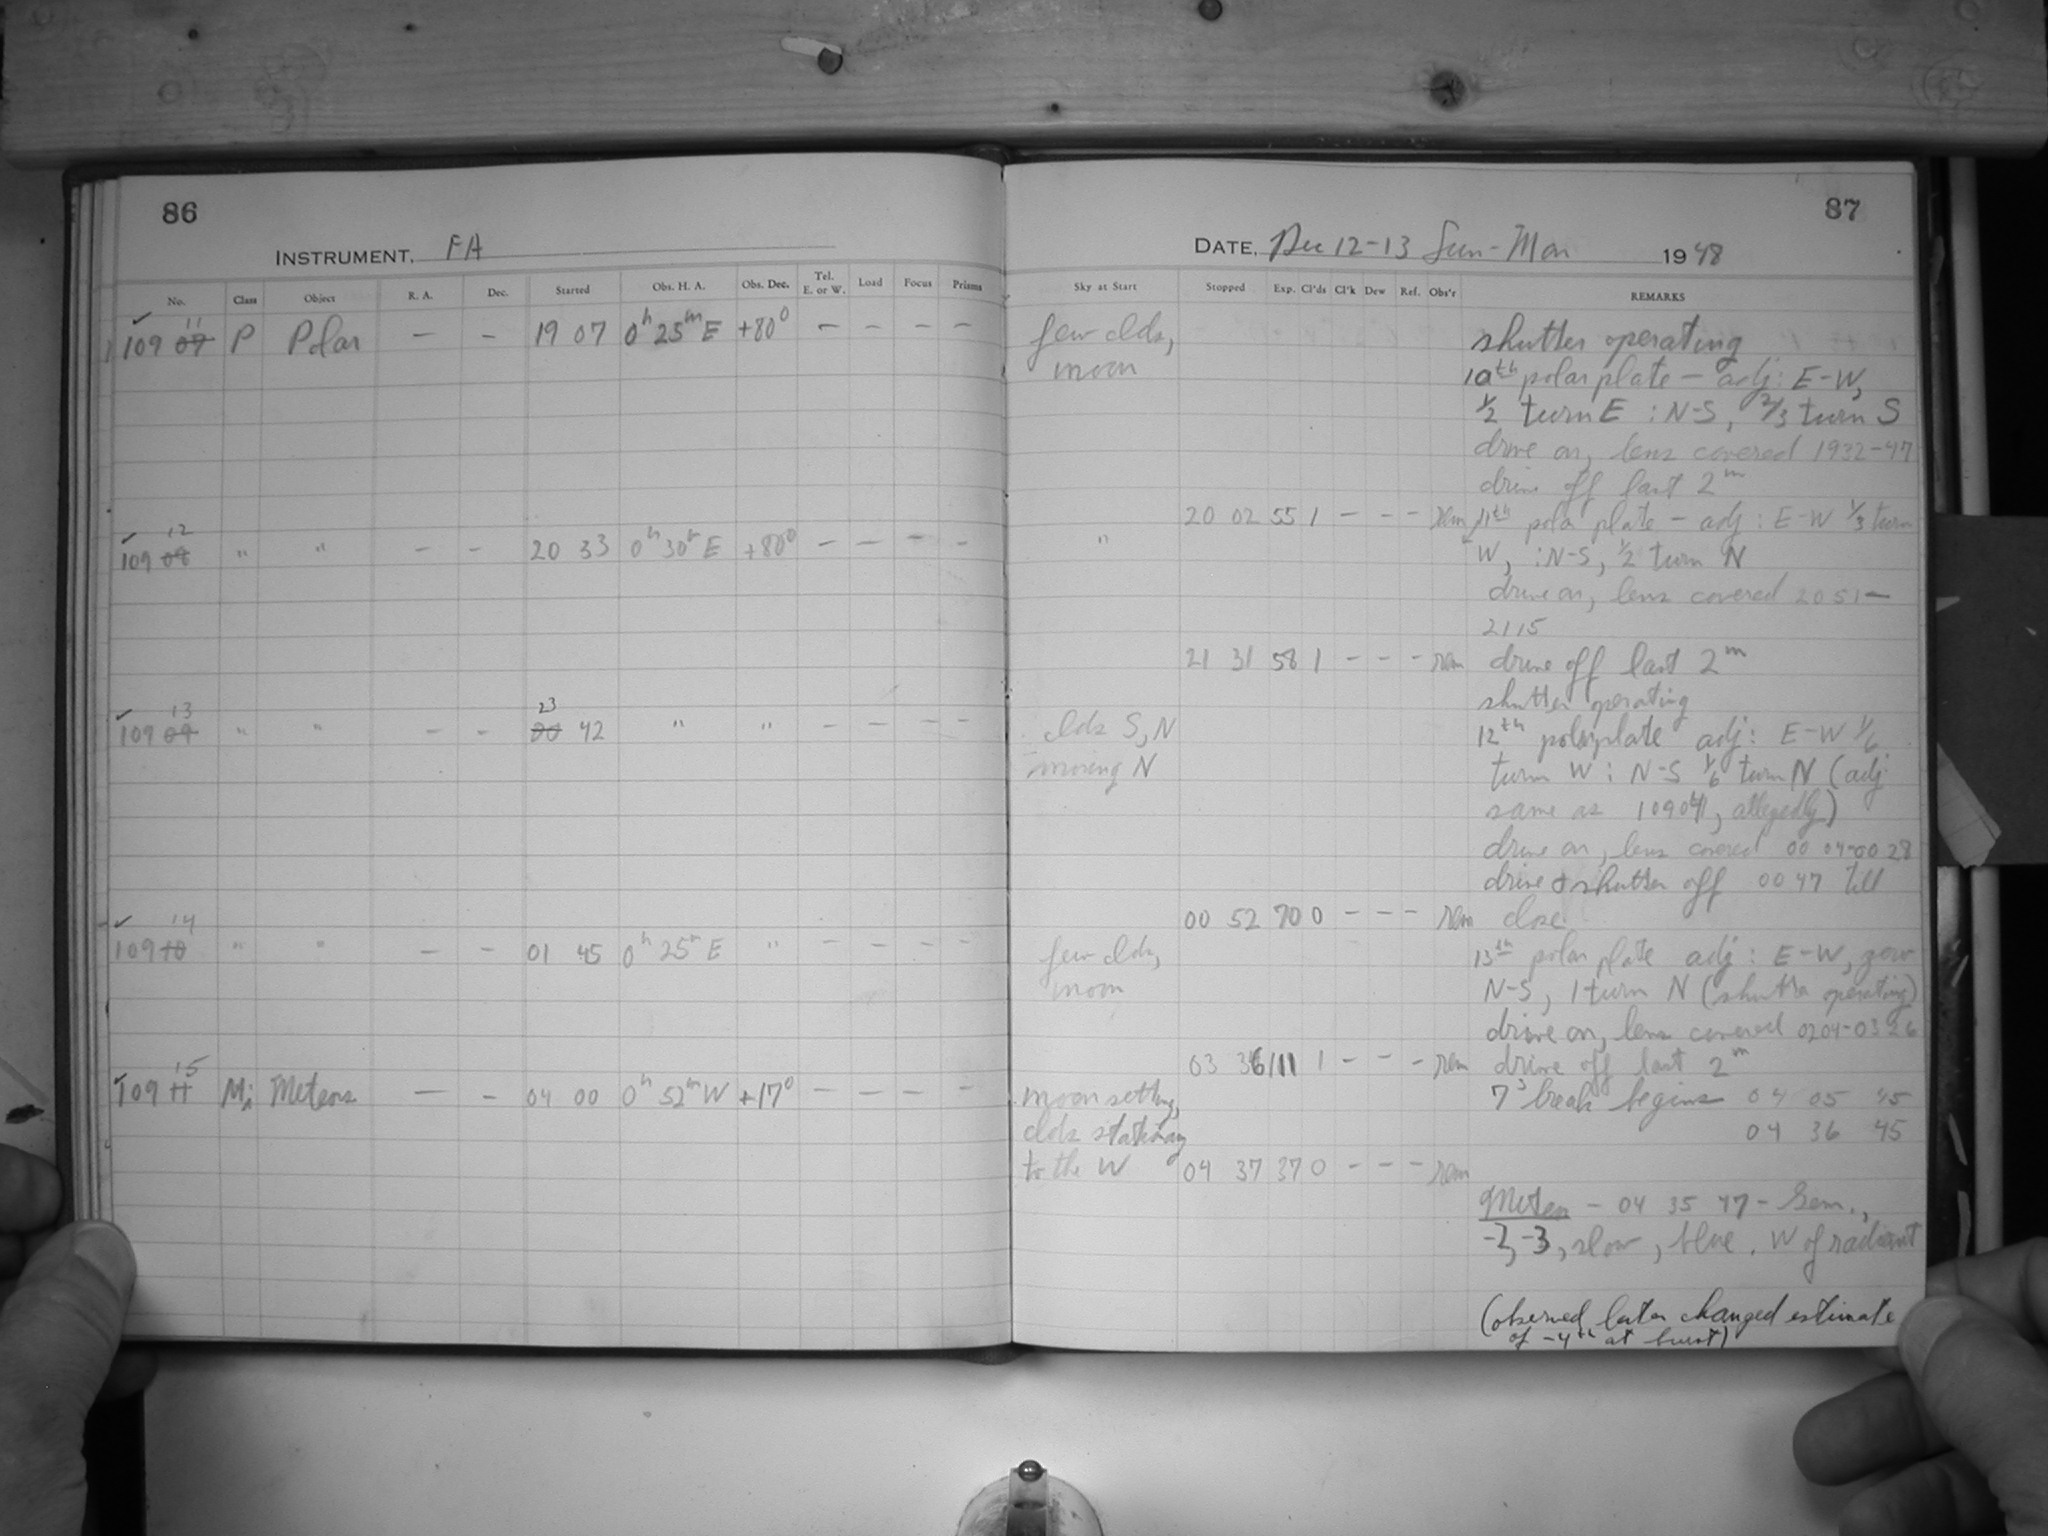 86
INSTRUMENT. FA
No. Class Object R. A. Dec. Started Obs. H. A. Obs. Dec. Tel. E. or W. Load Focus Prisms
11
109 07 P Polar — — 19 07 0h 25m E +80° — — — —
12
109 08 " " — — 20 33 0h 30m E +80° — — — —
13 23
109 09 " " — — 00 42 " " — — — —
14
109 10 " " — — 01 45 0h 25m E " — — — —
15
109 11 Meteors — — 04 00 0h 52m W +17° — — — —
87
DATE. Dec 12-13 Sun-Mon 1948
Sky at Start Stopped Exp. Cl'ds Cl'k Dew Ref. Obs'r REMARKS
few clds, shutter operating
moon 10th polar plate — adj: E-W,
1/2 turn E : N-S, 2/3 turn S
drive on, lens covered 1932-47
drive off last 2m
20 02 55 1 — — — rem 11th polar plate — adj: E-W 1/3 turn
" W, : N-S, 1/2 turn N
drive on, lens covered 2051—
2115
21 31 58 1 — — — rem drive off last 2m
shutter operating
clds S, N 12th polar plate adj: E-W 1/6
moving N turn W : N-S 1/6 turn N (adj
same as 10904, allegedly)
drive on, lens covered 00 04-00 28
drive & shutter off 00 47 till
00 52 70 0 — — — rem close.
few clds, 13th polar plate adj: E-W, zero
moon N-S, 1 turn N (shutter operating)
drive on, lens covered 0204-0326
03 36 111 1 — — — rem drive off last 2m
moon setting, 7s break begins 04 05 45
clds stationary 04 36 45
to the W 04 37 37 0 — — — rem
Meteor — 04 35 47 — Gem.,
-2, -3, slow, blue, W of radiant
(observed later changed estimate
of -4th at burst)